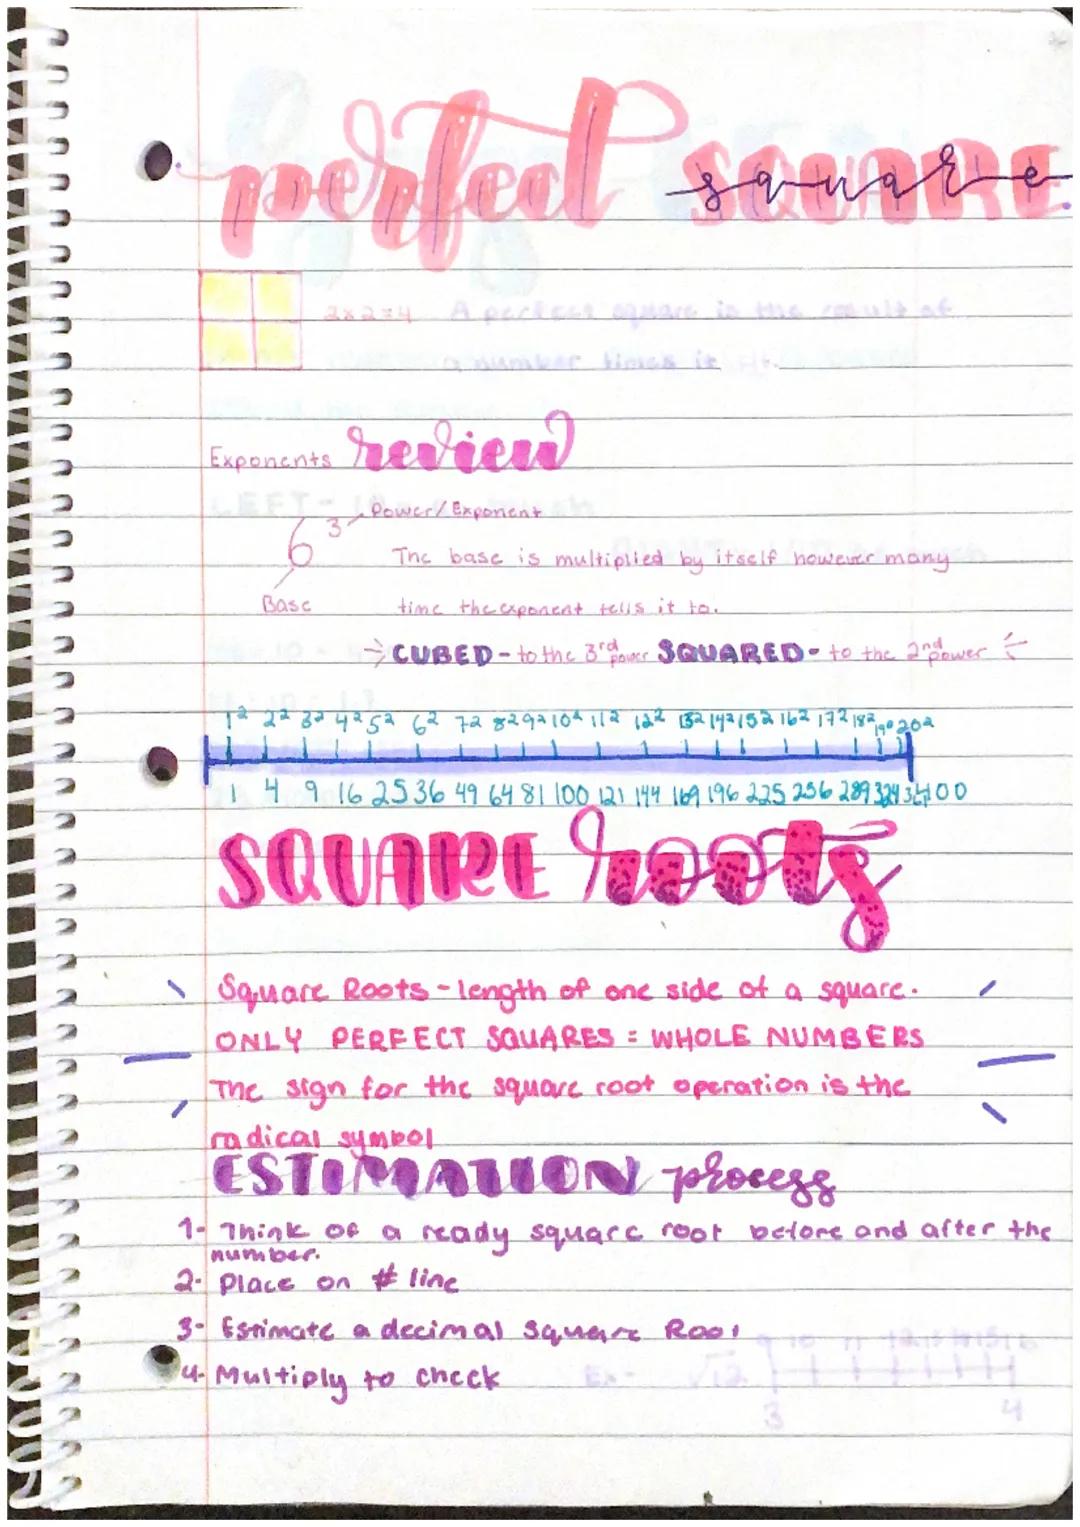 perfect SQUARE
square
2x2=4 A perfect square is the result of
a number times it
Exponents review
6 3 Power/Exponent
The base is multiplied by itself however many
Base time the exponent tells it to.
CUBED - to the 3rd power SQUARED - to the 2nd power
1² 2² 3² 4² 5² 6² 7² 8² 9² 10² 11² 12² 13² 14² 15² 16² 17² 18² 19² 20²
1 4 9 16 25 36 49 64 81 100 121 144 169 196 225 256 289 324 361 400
SQUARE roots
Square Roots - length of one side of a square.
ONLY PERFECT SQUARES = WHOLE NUMBERS
The sign for the square root operation is the
radical symbol
ESTIMATION process
1- Think of a ready square root before and after the
number.
2- Place on # line
3- Estimate a decimal square Root
4- Multiply to check
Ex- √12 9 10 11 12 13 14 15 16
3 4